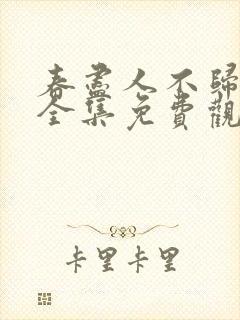 春盡人不歸
全集免費觀
卡里卡里